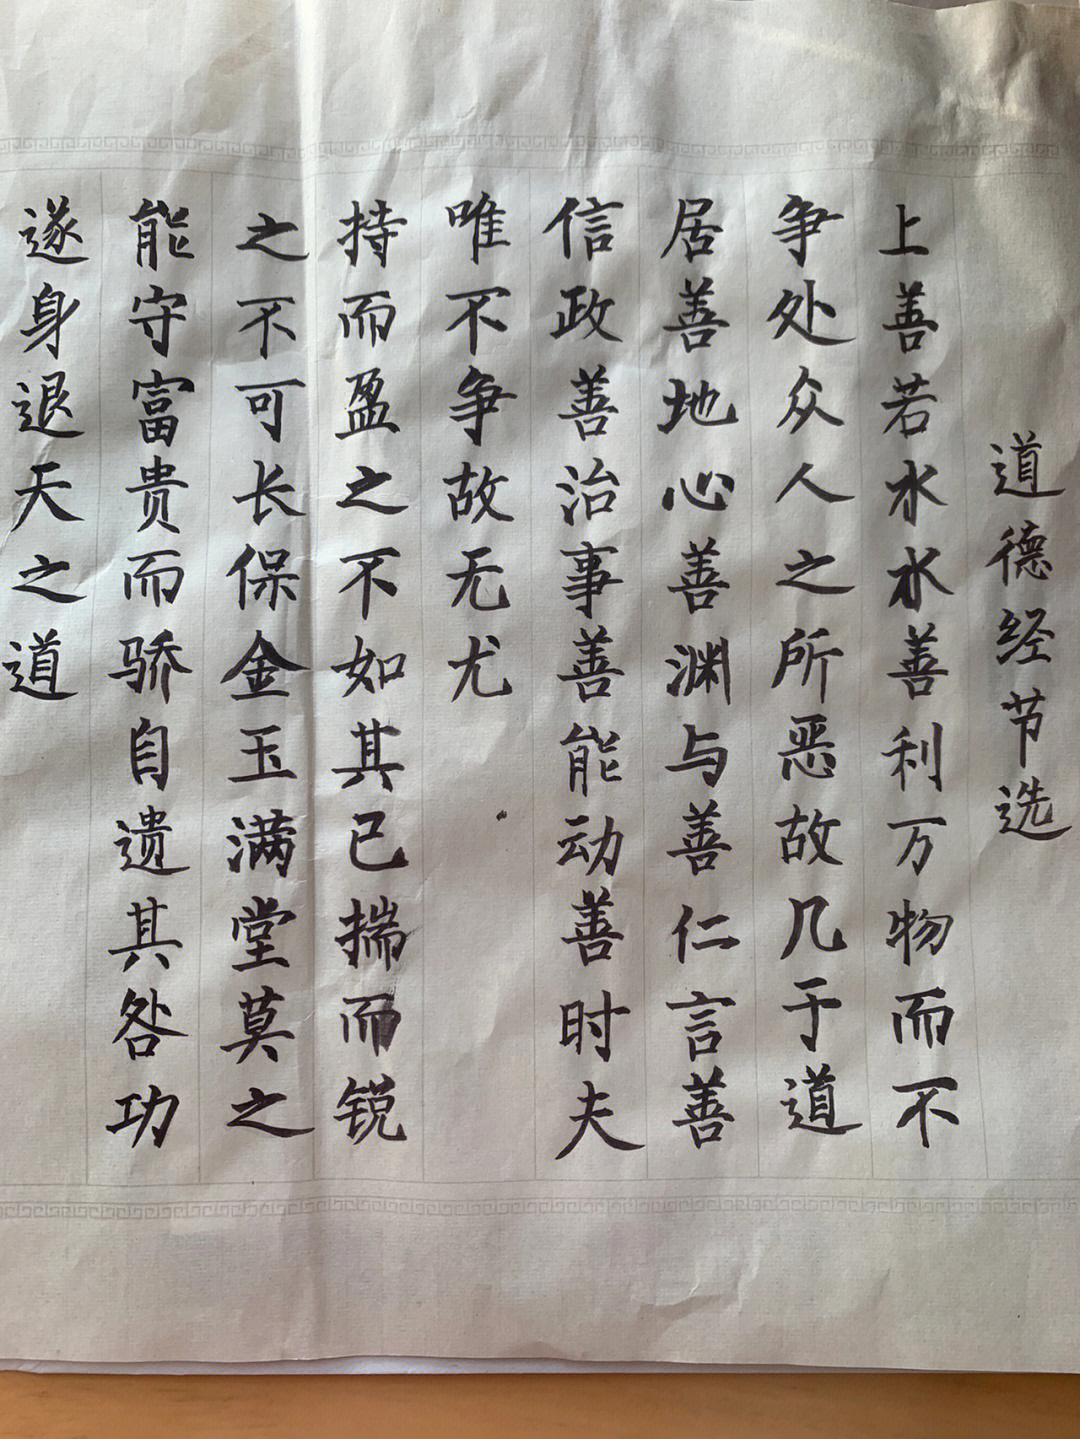 道德经节选
上善若水水善利万物而不
争处众人之所恶故几于道
居善地心善渊与善仁言善
信政善治事善能动善时夫
唯不争故无尤
持而盈之不如其已揣而锐
之不可长保金玉满堂莫之
能守富贵而骄自遗其咎功
遂身退天之道